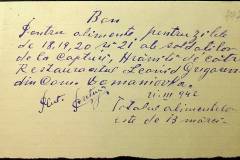 Bon
Pentru alimente, pentru zilele
de 18, 19, 20 și 21 al soldatilor
de la Capturi, Hrăniti de catre
Restaurantul Leonid
din Com. Domaniovka.
21. III 942
Totalul alimentelor
este de 13 mărci.